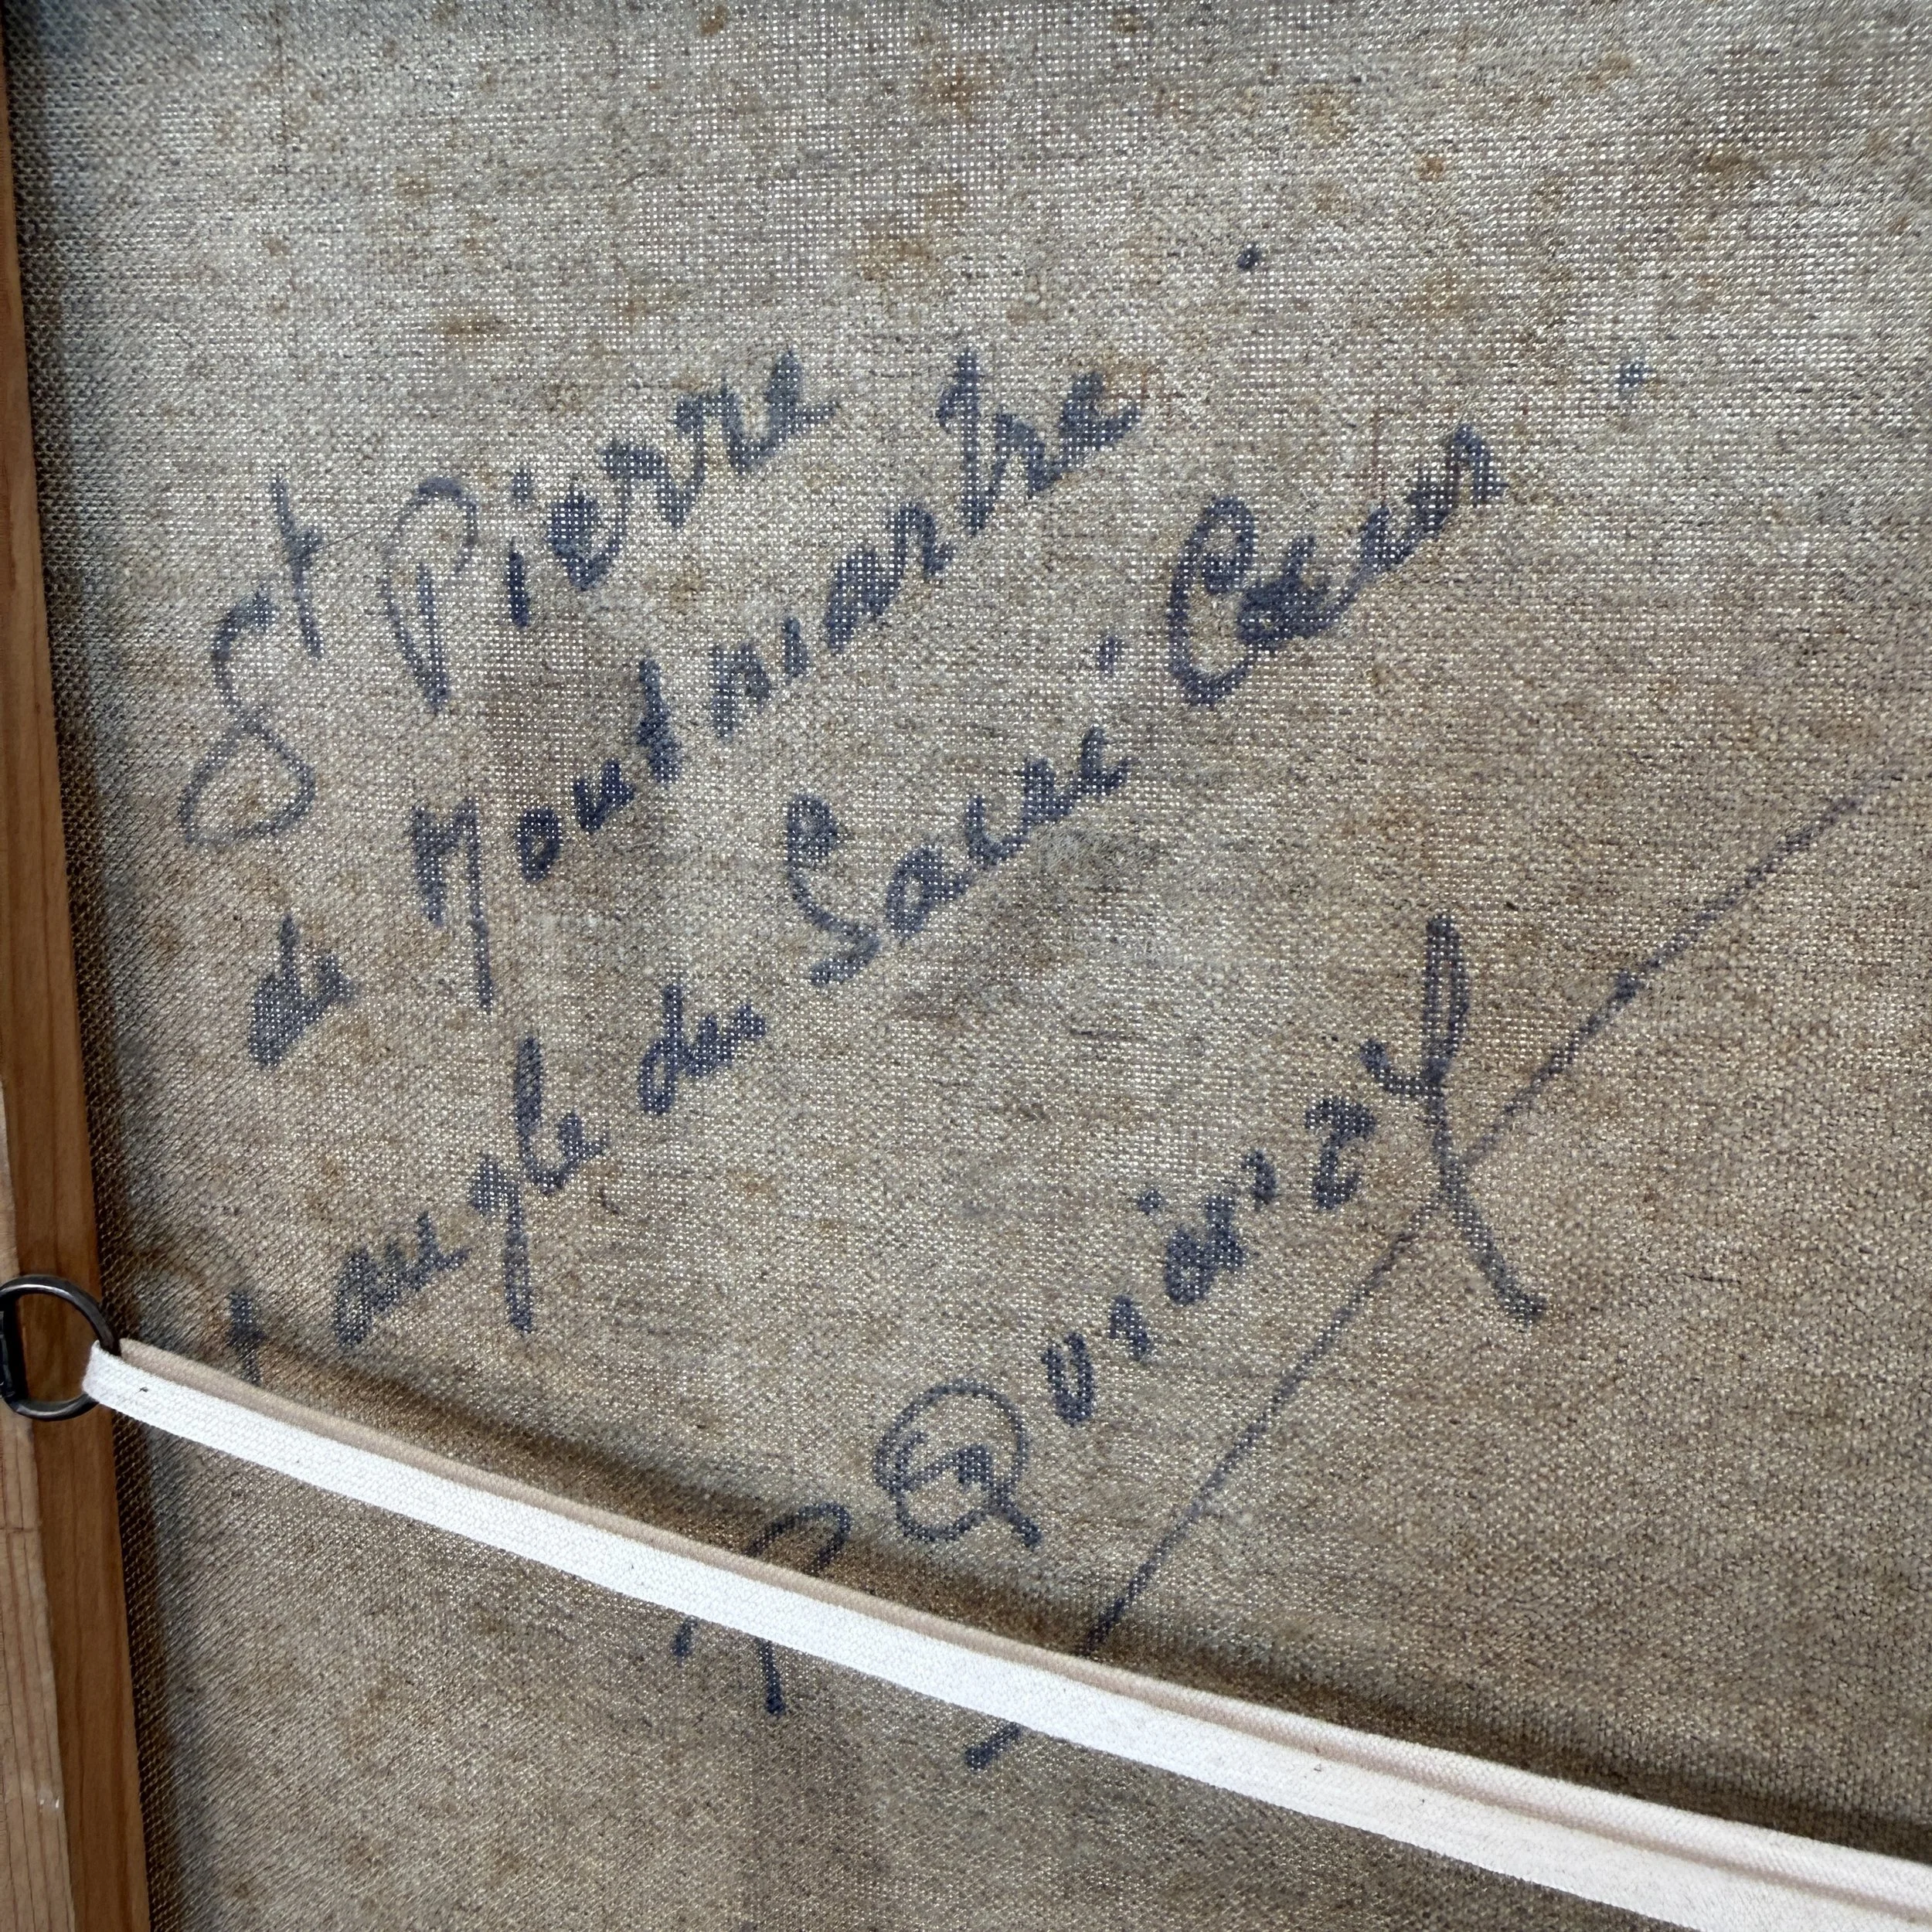 St Pierre
de Montmartre
et angle du Sacré Cœur
R Quirizy